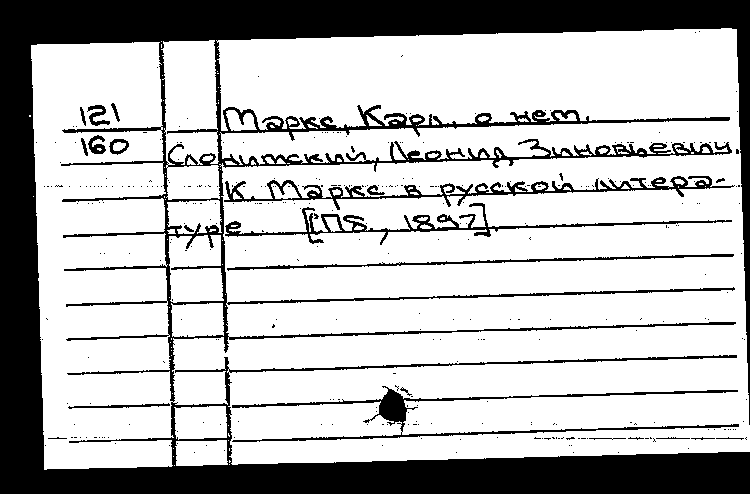 121 Маркс, Карл, о нем.
160 Слонимский, Леонид Зиновьевич.
К. Маркс в русской литера-
туре. [Пб., 1897].